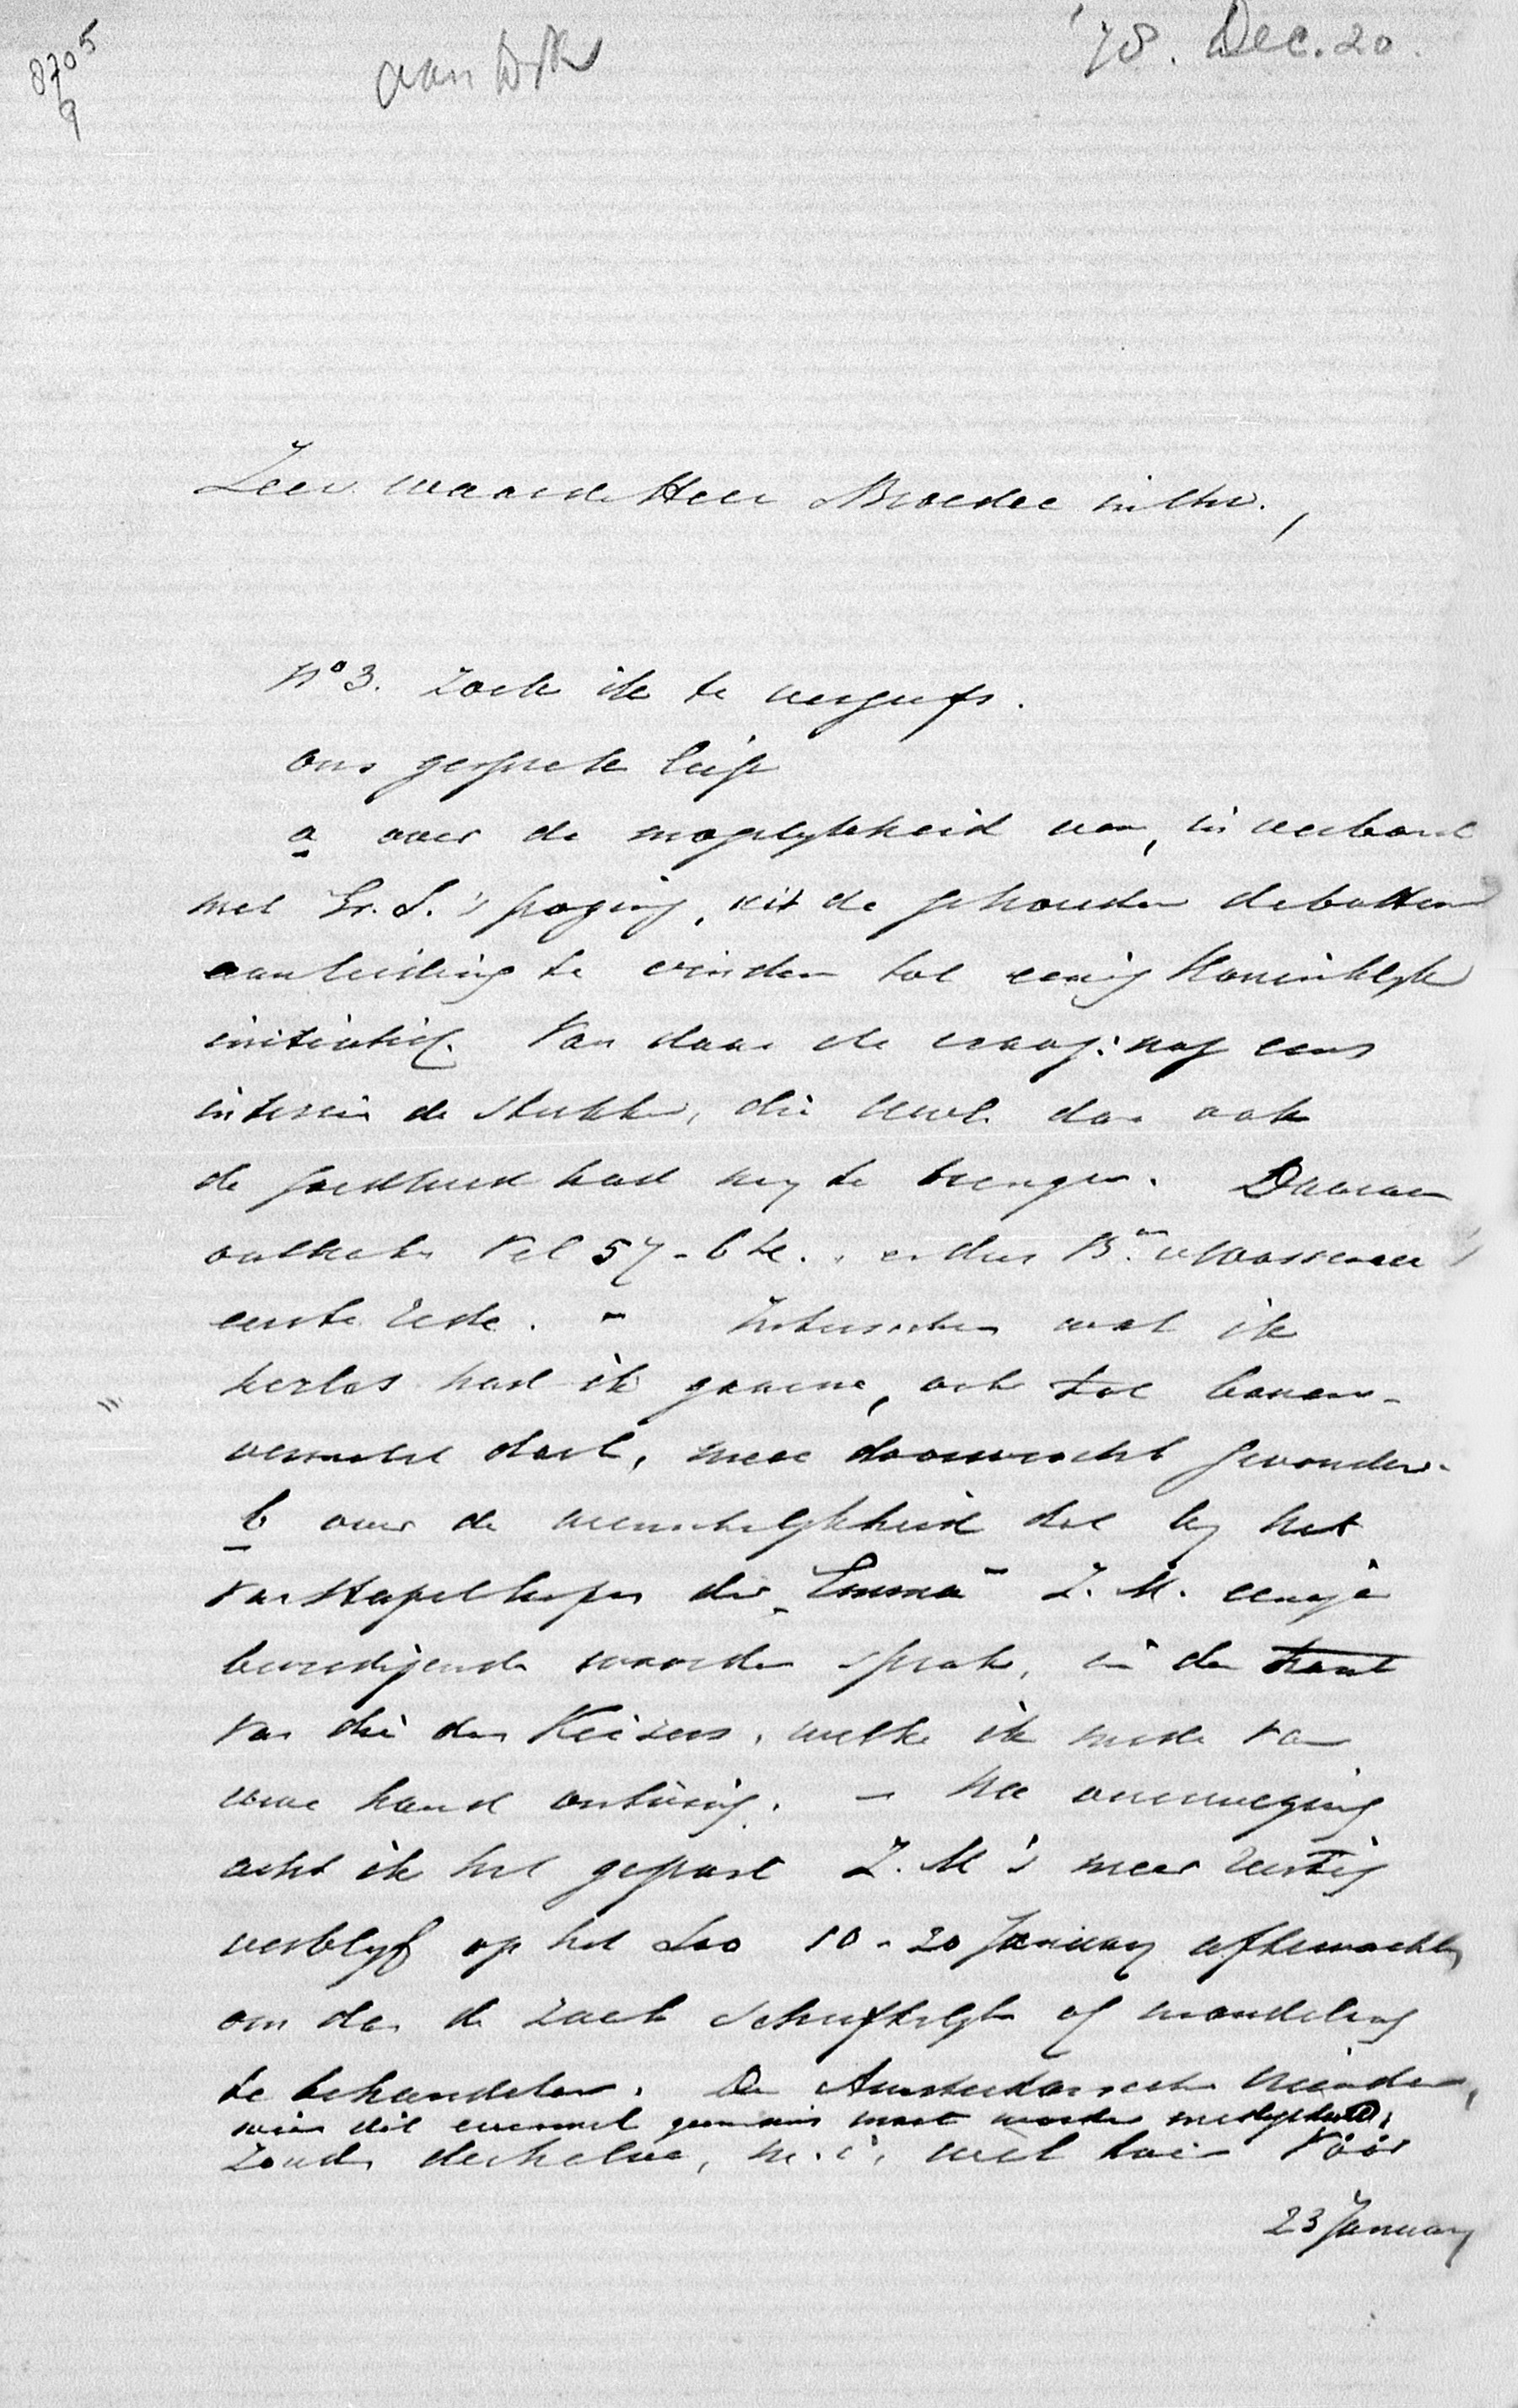 8705
9
aan
'78. Dec. 20.
Zeer waarde Heer Broeder in Chr.,
No 3. zoek ik te vergeefs.
Ons gesprek liep
a over de mogelykheid van, in verband
met Gr. S.'s poging, uit de gehouden debatten
aanleiding te vinden tot eenig Koninklyk
initiatief. Van daar de vraag: nog eens
inzien de stukken, die UwE. dan ook
de goedheid had my te brengen. Daaraan
ontbrak Vel 57 - b
eerste rede. - Intusschen wat ik
herlas had ik gaarne, ook tot
doel, meer doorwrocht gevonden.
b over de wenschelykheid dat by het
van Stapel loopen der "Emma" Z. M. eenige
bevredigende woorden sprak, in den trant
van die des Keizers, welke ik mede van
uwe hand ontving. - Na overweging
acht ik het gepast Z. M's meer rustig
verblyf op het Loo 10 - 20 January aftewachten
om dan de zaak schriftelyk of mondeling
te behandelen. De Amsterdamsche vrienden,
wien dit evenwel geenszins moet worden medegedeeld,
zouden derhalve, m. i. wel doen vóór
23 January